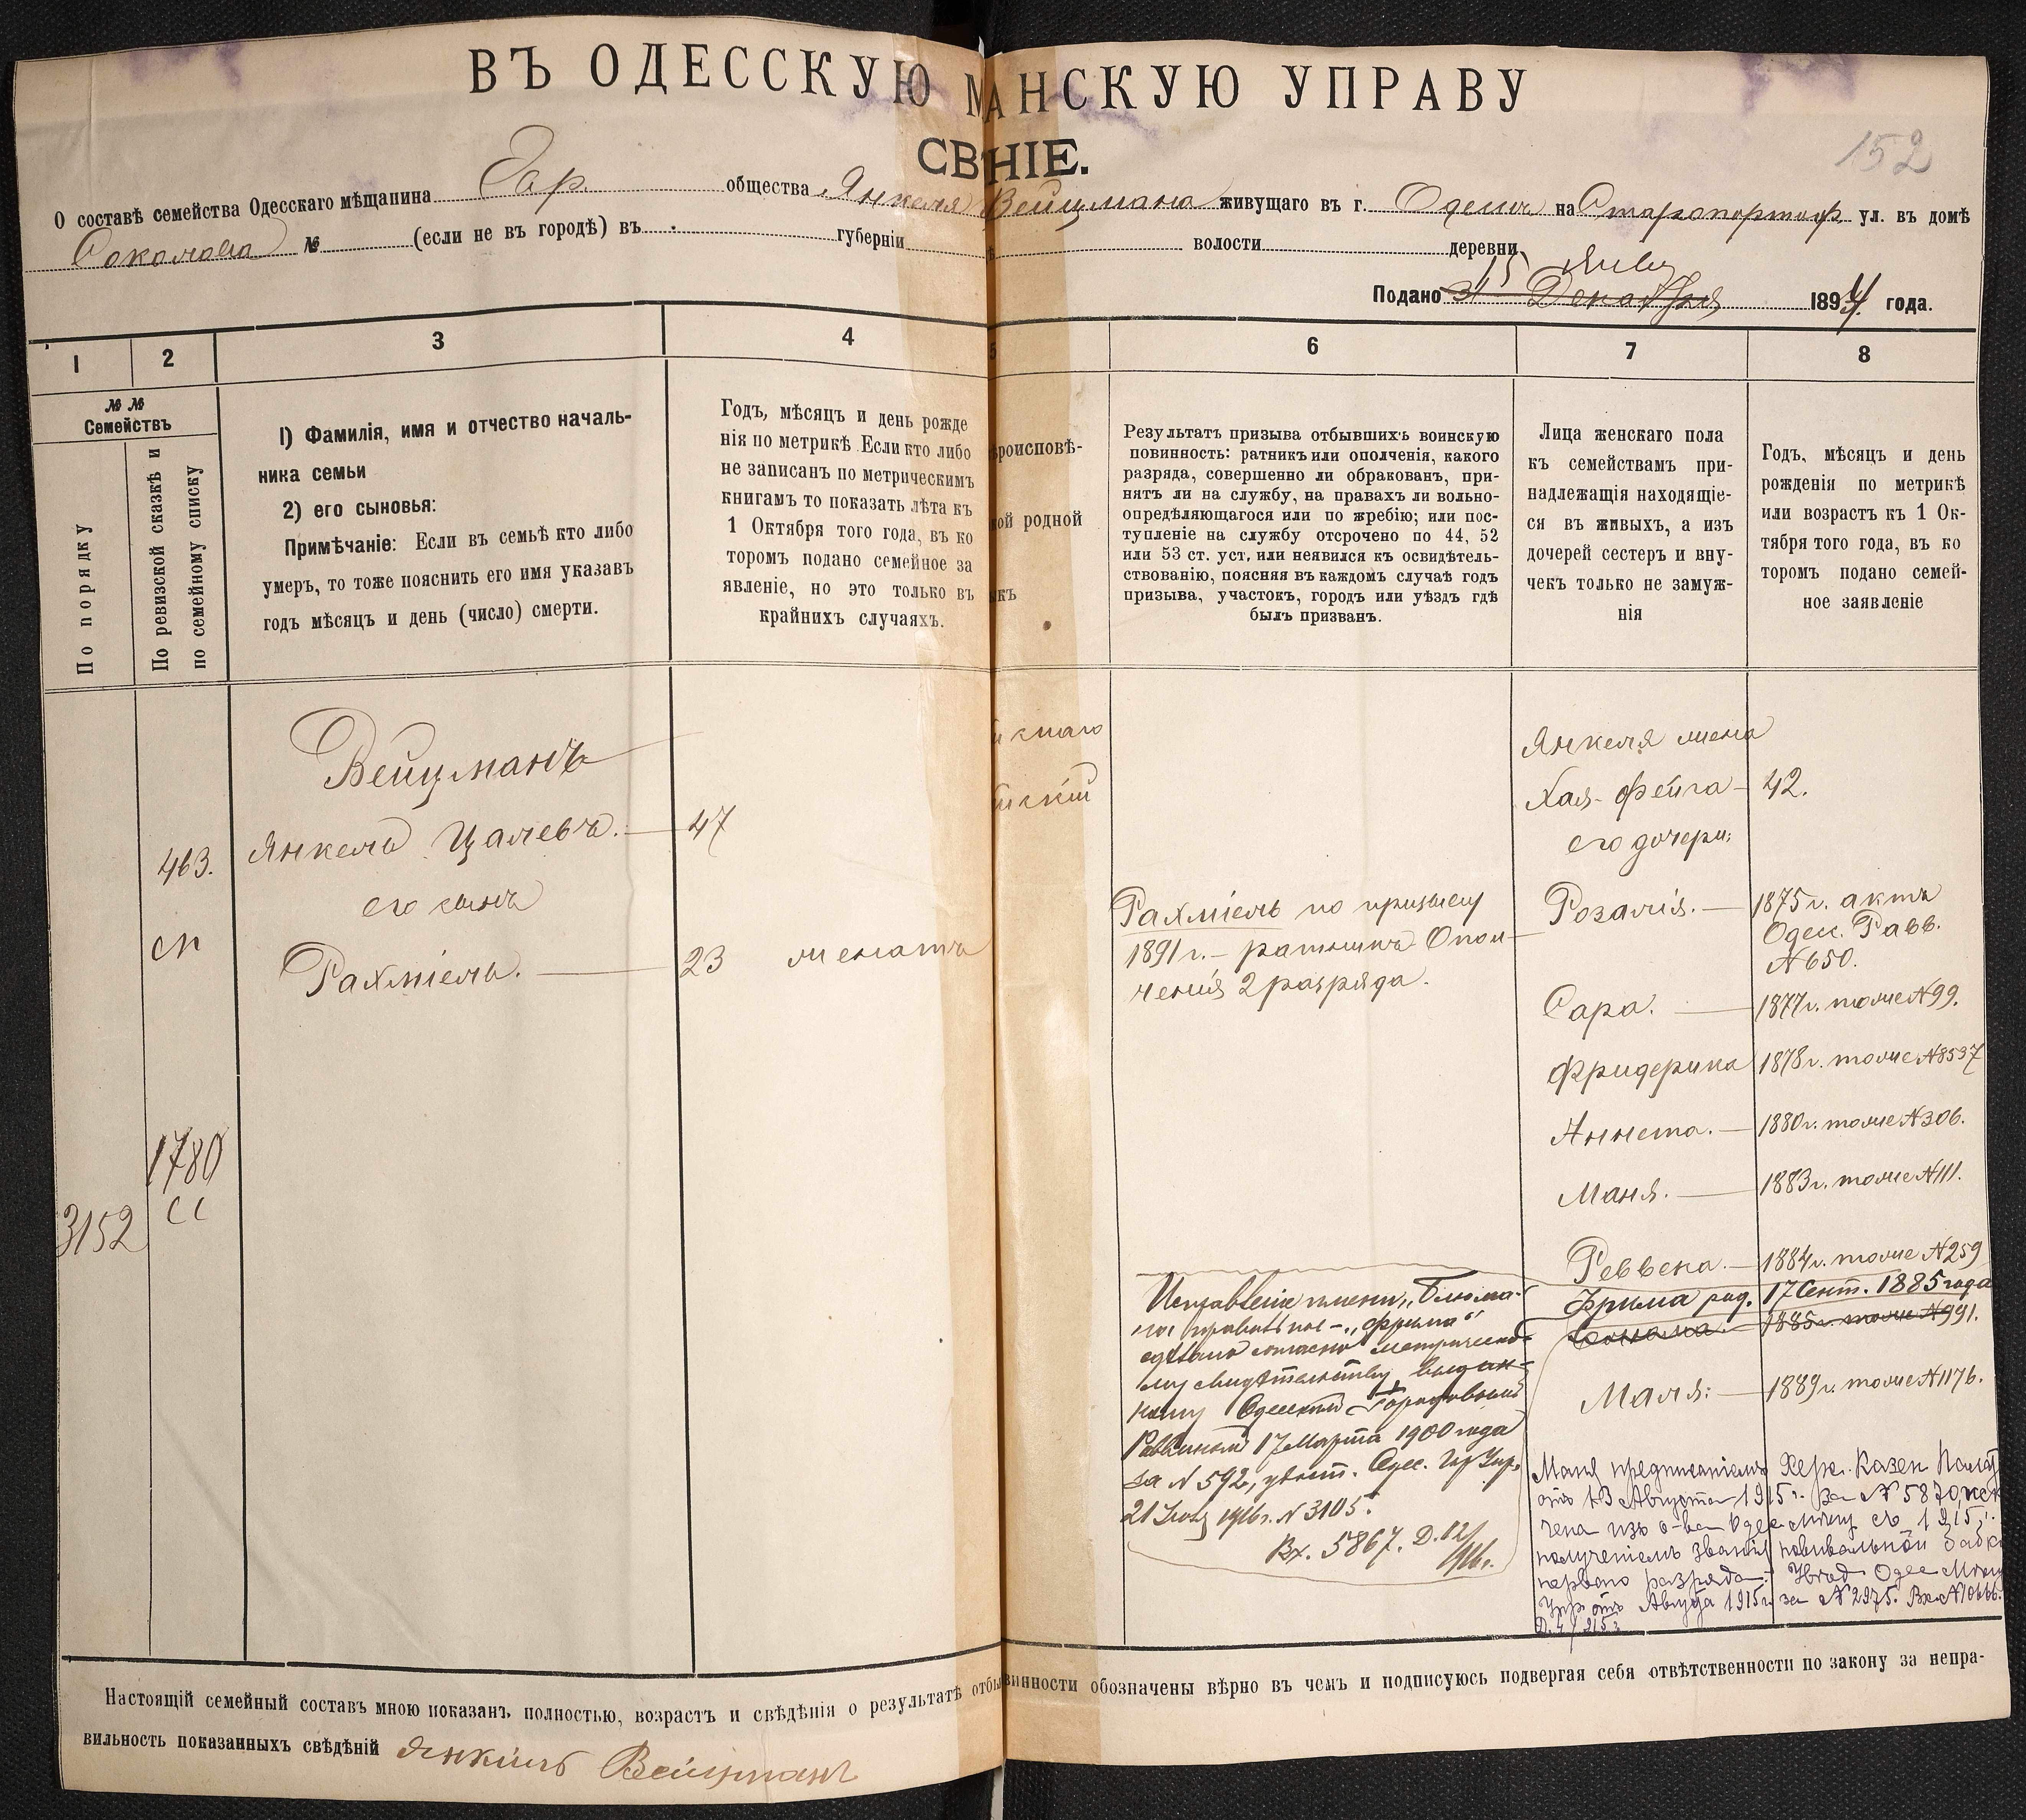 ВЪ ОДЕССКУЮ МАНСКУЮ УПРАВУ
СВѢНІЕ.
152
О составѣ семейства Одесскаго мѣщанина Евр. общества Янкеля Вейцмана живущаго въ г. Одессѣ на Старопортоф. ул. въ домѣ
Соколова № (если не въ городѣ) въ губерніи волости деревни
15 Янв.
Подано 31 Декабря 1894 года.
1 2 3 4 5 6 7 8
№ №
Семействъ
По порядку
По ревизской сказкѣ и
по семейному списку
1) Фамилія, имя и отчество началь-
ника семьи
2) его сыновья:
Примѣчаніе: Если въ семьѣ кто либо
умеръ, то тоже пояснить его имя указавъ
годъ мѣсяцъ и день (число) смерти.
Годъ, мѣсяцъ и день рожде
нія по метрикѣ Если кто либо
не записанъ по метрическимъ
книгамъ то показать лѣта къ
1 Октября того года, въ ко
торомъ подано семейное за
явленіе, но это только въ
крайнихъ случаяхъ.
ѣроисповѣ-
кой родной
ыкъ
Результатъ призыва отбывшихъ воинскую
повинность: ратникъ или ополченія, какого
разряда, совершенно ли обракованъ, при-
нятъ ли на службу, на правахъ ли вольно-
опредѣляющагося или по жребію; или пос-
тупленіе на службу отсрочено по 44, 52
или 53 ст. уст, или неявился къ освидѣтель-
ствованію, поясняя въ каждомъ случаѣ годъ
призыва, участокъ, городъ или уѣздъ гдѣ
былъ призванъ.
Лица женскаго пола
къ семействамъ при-
надлежащія находящіе-
ся въ живыхъ, а изъ
дочерей сестеръ и вну-
чекъ только не замуж-
нія
Годъ, мѣсяцъ и день
рожденія по метрикѣ
или возрастъ къ 1 Ок-
тября того года, въ ко
торомъ подано семей-
ное заявленіе
Вейцманъ
463. Янкель Цалевъ. — 47
его сынъ
сп
Рахміель. — 23 женатъ
1780
сс
3152
йскаго
йскій
Рахміель по призыву
1891 г. — ратникъ Опол-
ченія 2 разряда.
Янкеля жена
Хая-Фейга — 42.
его дочери:
Розалія. — 1875 г. актъ
Одес. Равв.
№ 650.
Сара. — 1877 г. тоже № 99.
Фридерика 1878 г. тоже № 8537
Аннета. — 1880 г. тоже № 306.
Маня. — 1883 г. тоже № 111.
Реввека. — 1884 г. тоже № 259
Фрима род. 17 Сент. 1885 года
1885 г. тоже № 991.
Маля: — 1889 г. тоже № 1176.
Исправленіе имени „Блюма"
на правильное — „Фрима"
сдѣлано согласно метрическо-
му свидѣтельству, выдан-
ному Одесскимъ Городовымъ
Раввиномъ 17 Марта 1900 года
за № 592, удост. Одес. Гор. Упр.
21 1916 г. № 3105.
Вх. 5867. Д. 12/
916 г.
Маня предписаніемъ Херс. Казен Палат
отъ 13 Августа 1915 г. за № 5870, искл
чена изъ о-ва Одес мѣщ съ 1915 г.
полученіемъ званія повивальной бабки
перваго разряда. Увѣд Одес Мѣщ
Упр отъ Августа 1915 г. за № 2975. Вх.
Настоящій семейный составъ мною показанъ полностью, возрастъ и свѣдѣнія о результатѣ отбывинности обозначены вѣрно въ чемъ и подписуюсь подвергая себя отвѣтственности по закону за непра-
вильность показанныхъ свѣдѣній Янкиль Вейцманъ